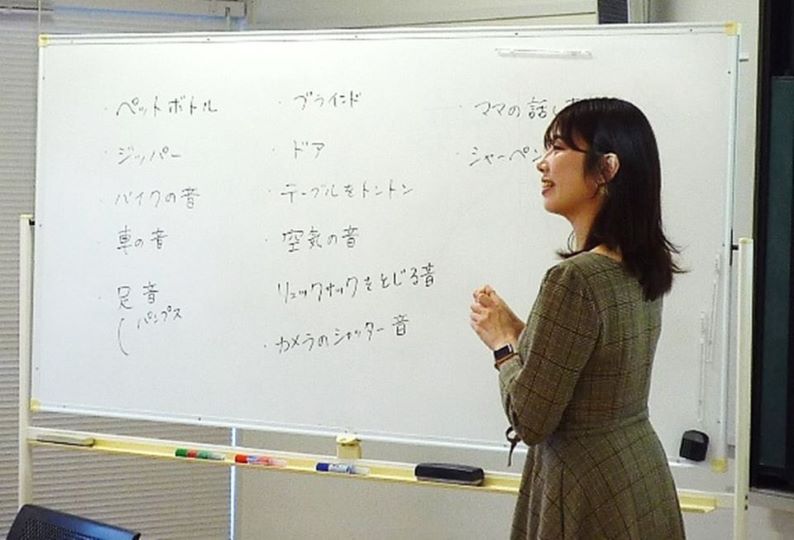 ・ペットボトル
・ジッパー
・バイクの音
・車の音
・足音
(パンプス
・ブラインド
・ドア
・テーブルをトントン
・空気の音
リュックサックをとじる音
・カメラのシャッター音
・ママの話し
・シャーペン